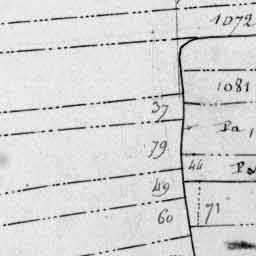 1072
1081
37
Pa
79
44
49
60
71